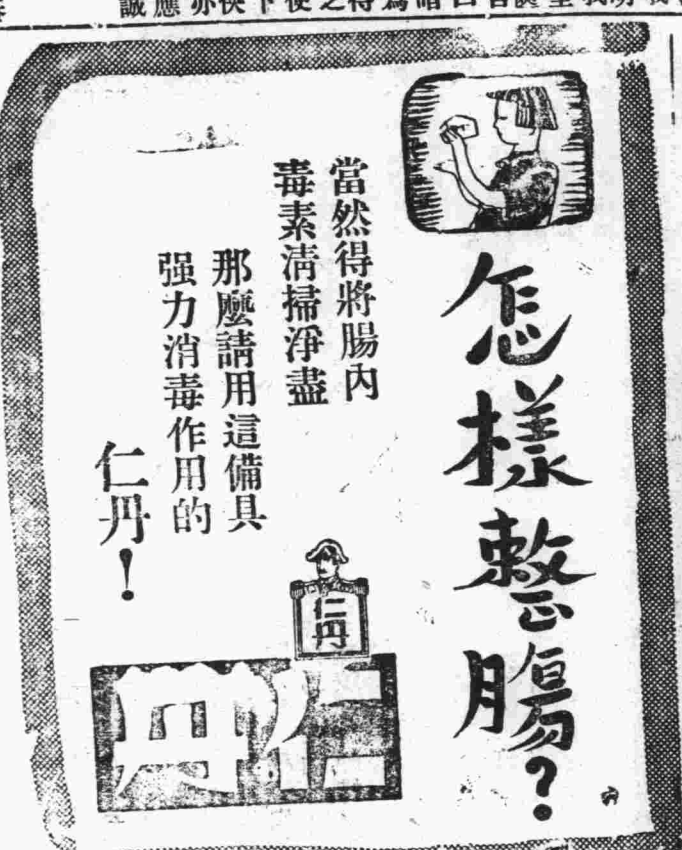 怎樣整腸？
當然得將腸內
毒素清掃淨盡
那麼請用這備具
强力消毒作用的
仁丹！
仁丹
仁丹